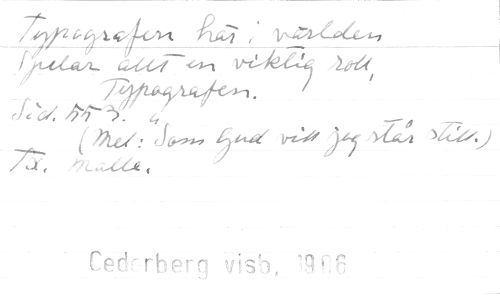 Typografen här i världen
Spelar allt en viktig roll,
Typografen.
Sid. 553.
(Mel: Som Gud vill jag står still.)
Tx. Malle.
Cederberg visb, 1906